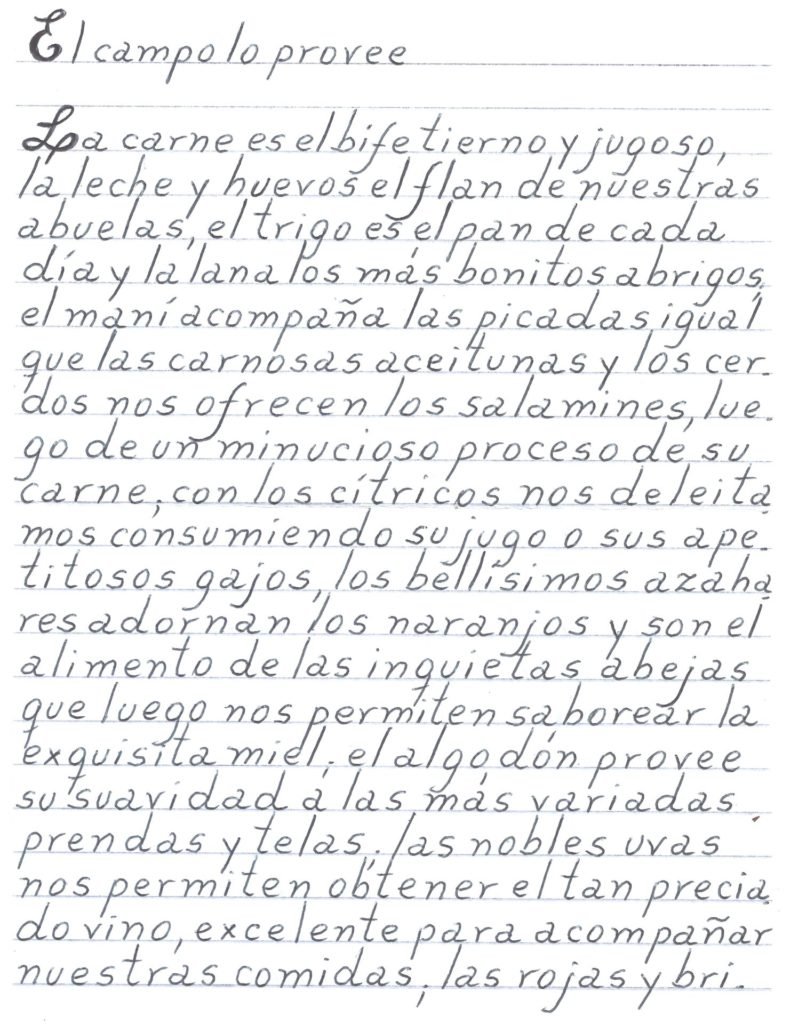 El campo lo provee
La carne es el bife tierno y jugoso,
la leche y huevos el flan de nuestras
abuelas, el trigo es el pan de cada
día y la lana los más bonitos abrigos,
el maní acompaña las picadas igual
que las carnosas aceitunas y los cer-
dos nos ofrecen los salamines, lue-
go de un minucioso proceso de su
carne; con los cítricos nos deleita
mos consumiendo su jugo o sus ape-
titosos gajos, los bellísimos azaha
res adornan los naranjos y son el
alimento de las inquietas abejas
que luego nos permiten saborear la
exquisita miel; el algodón provee
su suavidad a las más variadas
prendas y telas; las nobles uvas
nos permiten obtener el tan precia
do vino, excelente para acompañar
nuestras comidas; las rojas y bri-